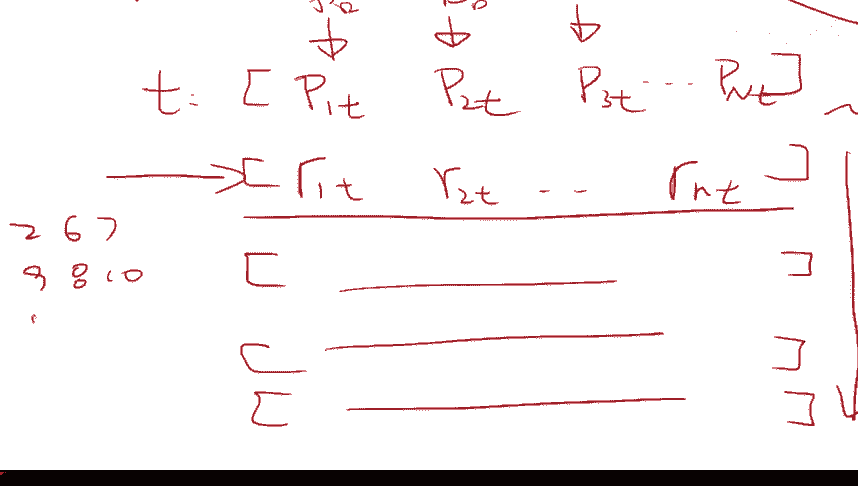 t: [ P1t P2t P3t ... PNt ]
[ r1t r2t .. rnt ]
2 6 7
9 8 10
[ ]
[ ]
[ ]